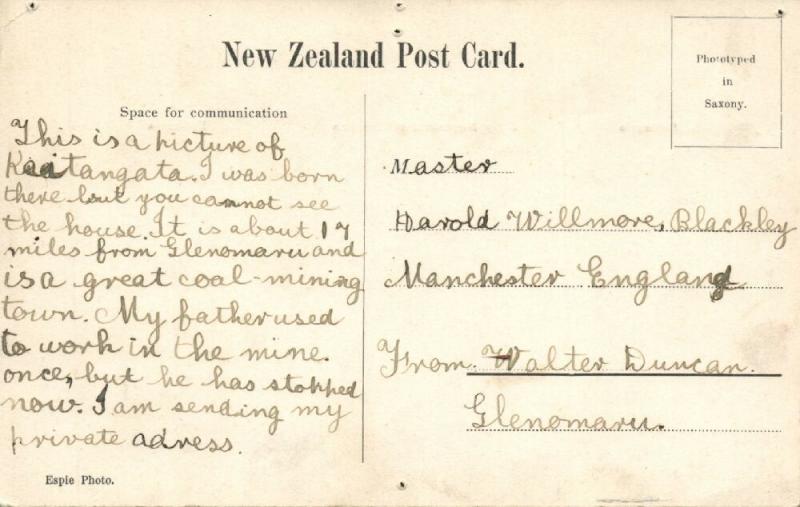 New Zealand Post Card.
Phototyped
in
Saxony.
Space for communication
This is a picture of
Kaitangata. I was born
there but you cannot see
the house. It is about 17
miles from Glenomaru and
is a great coal-mining
town. My father used
to work in the mine
once, but he has stopped
now. I am sending my
private adress.
Espie Photo.
Master
Harold Willmore, Blackley
Manchester England
From Walter Duncan.
Glenomaru.